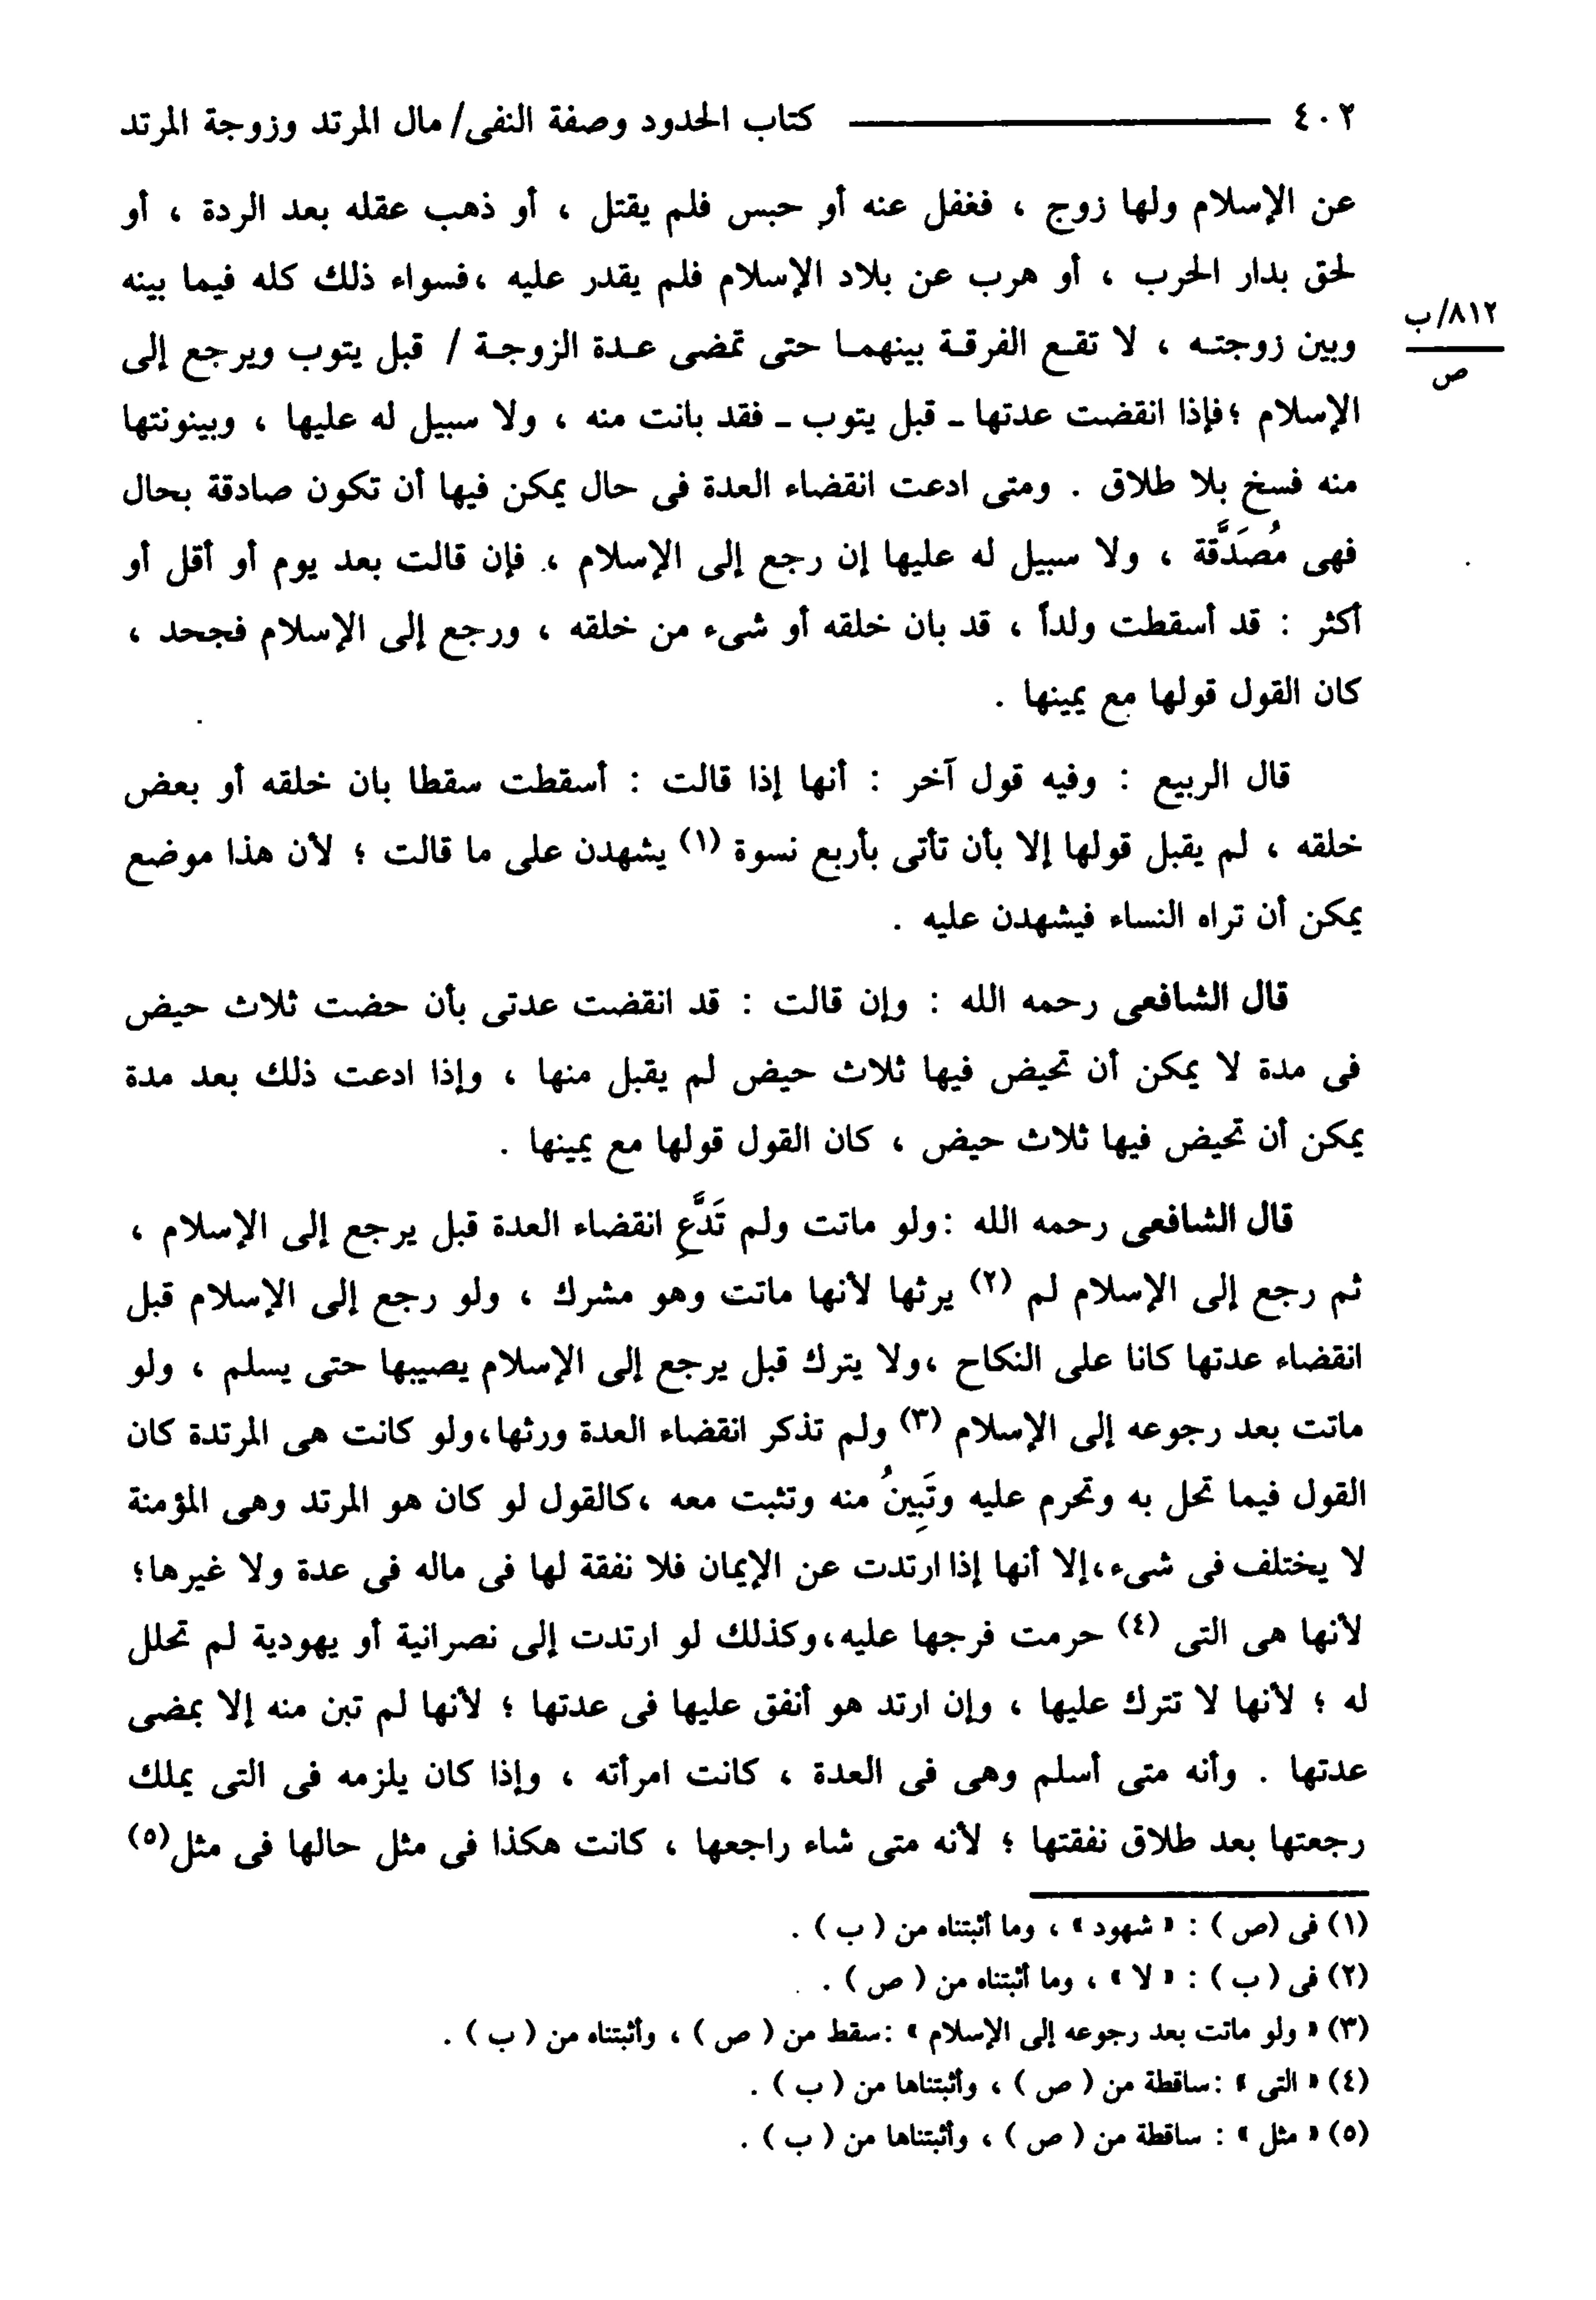 ٤٠٢ ــــــــــــــــــ كتاب الحدود وصفة النفى/ مال المرتد وزوجة المرتد
عن الإسلام ولها زوج ، فغفل عنه أو حبس فلم يقتل ، أو ذهب عقله بعد الردة ، أو
لحق بدار الحرب ، أو هرب عن بلاد الإسلام فلم يقدر عليه ،فسواء ذلك كله فيما بينه
٨١٢/ب
ص
وبين زوجتـه ، لا تقـع الفرقـة بينهمـا حتى تمضى عـدة الزوجـة / قبل يتوب ويرجع إلى
الإسلام ؛فإذا انقضت عدتها ـ قبل يتوب ـ فقد بانت منه ، ولا سبيل له عليها ، وبينونتها
منه فسخ بلا طلاق . ومتى ادعت انقضاء العدة فى حال يمكن فيها أن تكون صادقة بحال
فهى مُصَدَّقة ، ولا سبيل له عليها إن رجع إلى الإسلام ، فإن قالت بعد يوم أو أقل أو
أكثر : قد أسقطت ولداً ، قد بان خلقه أو شىء من خلقه ، ورجع إلى الإسلام فجحد ،
كان القول قولها مع يمينها .
قال الربيع : وفيه قول آخر : أنها إذا قالت : أسقطت سقطا بان خلقه أو بعض
خلقه ، لم يقبل قولها إلا بأن تأتى بأربع نسوة (١) يشهدن على ما قالت ؛ لأن هذا موضع
يمكن أن تراه النساء فيشهدن عليه .
قال الشافعى رحمه الله : وإن قالت : قد انقضت عدتى بأن حضت ثلاث حيض
فى مدة لا يمكن أن تحيض فيها ثلاث حيض لم يقبل منها ، وإذا ادعت ذلك بعد مدة
يمكن أن تحيض فيها ثلاث حيض ، كان القول قولها مع يمينها .
قال الشافعى رحمه الله :ولو ماتت ولم تَدَّعِ انقضاء العدة قبل يرجع إلى الإسلام ،
ثم رجع إلى الإسلام لم (٢) يرثها لأنها ماتت وهو مشرك ، ولو رجع إلى الإسلام قبل
انقضاء عدتها كانا على النكاح ،ولا يترك قبل يرجع إلى الإسلام يصيبها حتى يسلم ، ولو
ماتت بعد رجوعه إلى الإسلام (٣) ولم تذكر انقضاء العدة ورثها،ولو كانت هى المرتدة كان
القول فيما تحل به وتحرم عليه وتَبِينُ منه وتثبت معه ،كالقول لو كان هو المرتد وهى المؤمنة
لا يختلف فى شىء،إلا أنها إذا ارتدت عن الإيمان فلا نفقة لها فى ماله فى عدة ولا غيرها؛
لأنها هى التى (٤) حرمت فرجها عليه،وكذلك لو ارتدت إلى نصرانية أو يهودية لم تحلل
له ؛ لأنها لا تترك عليها ، وإن ارتد هو أنفق عليها فى عدتها ؛ لأنها لم تبن منه إلا بمضى
عدتها . وأنه متى أسلم وهى فى العدة ، كانت امرأته ، وإذا كان يلزمه فى التى يملك
رجعتها بعد طلاق نفقتها ؛ لأنه متى شاء راجعها ، كانت هكذا فى مثل حالها فى مثل(٥)
(١) فى (ص) : « شهود » ، وما أثبتناه من ( ب ) .
(٢) فى ( ب ) : « لا » ، وما أثبتناه من ( ص ) .
(٣) « ولو ماتت بعد رجوعه إلى الإسلام » :سقط من ( ص ) ، وأثبتناه من ( ب ) .
(٤) « التى » :ساقطة من ( ص ) ، وأثبتناها من ( ب ) .
(٥) « مثل » : ساقطة من ( ص ) ، وأثبتناها من ( ب ) .